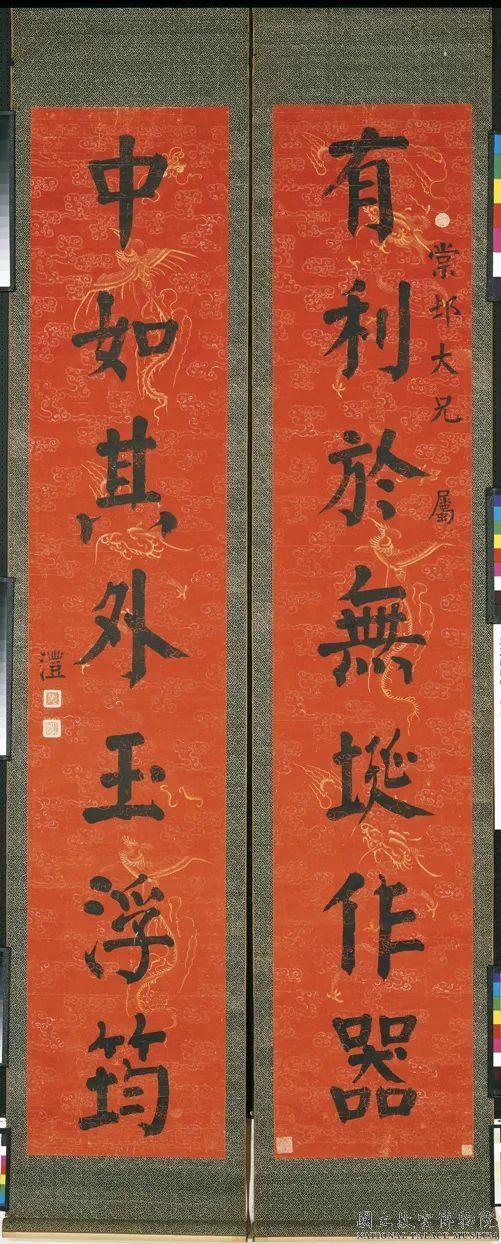 棠邨大兄 屬
有利於無埏作器
中如其外玉浮筠
澧
國立故宮博物院
NATIONAL PALACE MUSEUM